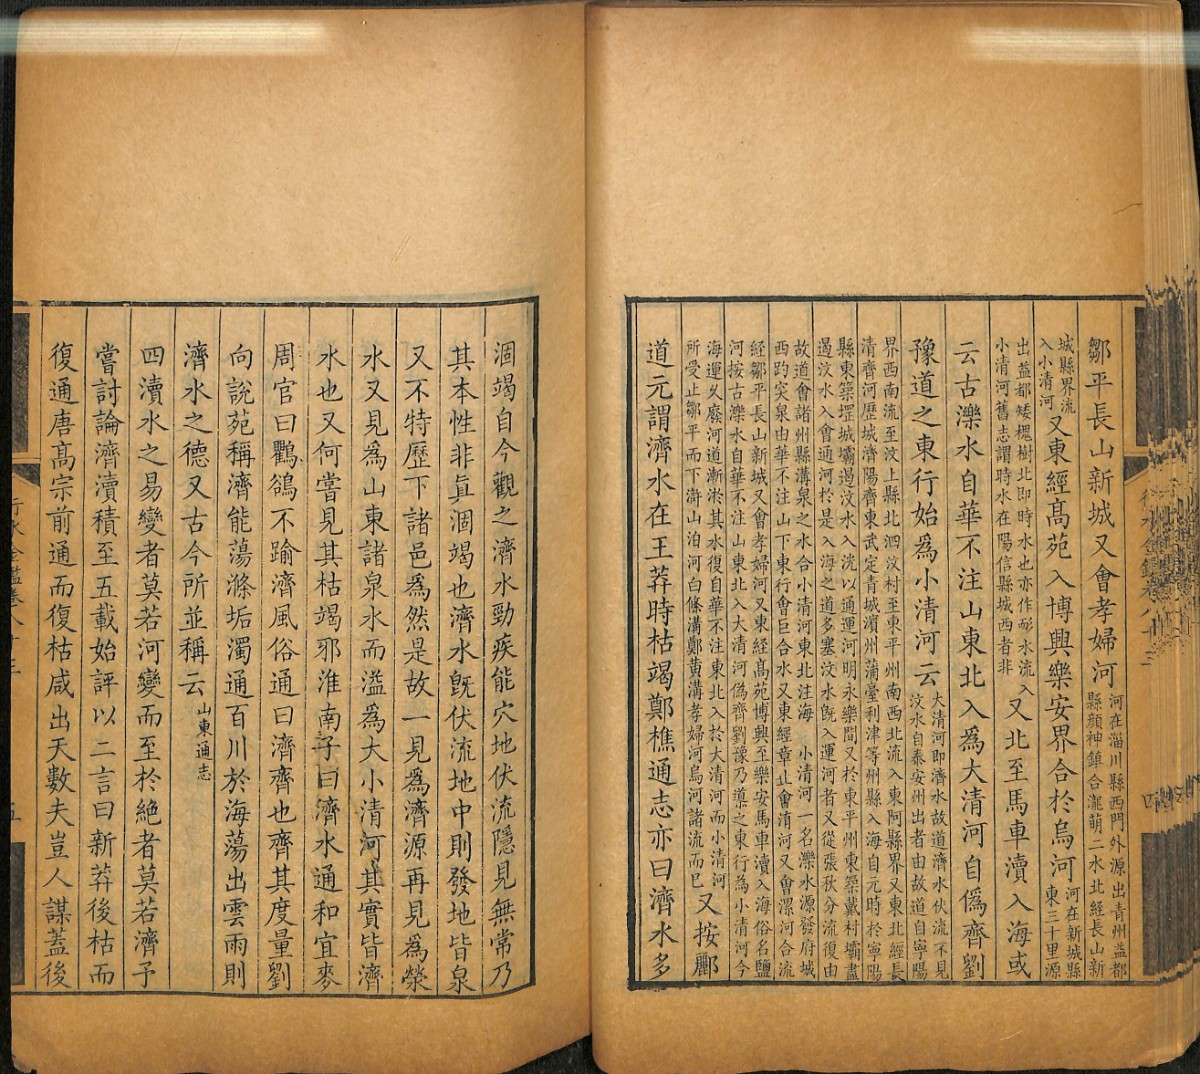 鄒平長山新城又會孝婦河河在淄川縣西門外源出青州益都
縣顏神鎮合瀧萌二水北經長山新
城縣界流
入小清河又東經髙苑入博興樂安界合於烏河河在新城縣
東三十里源
出益都矮槐樹北即時水也亦作耏水流入
小清河舊志謂時水在陽信縣城西者非又北至馬車瀆入海或
云古濼水自華不注山東北入爲大清河自僞齊劉
豫道之東行始爲小清河云大清河即濟水故道濟水伏流不見
汶水自泰安州出者由故道自寧陽
界西南流至汶上縣北泗汶村至東平州南西北流入東阿縣界又東北經長
清齊河歷城濟陽齊東武定青城濱州蒲臺利津等州縣入海自元時於寧陽
縣東築堽城壩遏汶水入洸以通運河明永樂間又於東平州東築戴村壩盡
遏汶水入會通河於是入海之道多塞汶水旣入運河者又從張秋分流復由
故道會諸州縣溝泉之水合小清河東北注海 小清河一名濼水源發府城
西趵突泉由華不注山下東行會巨合水又東經章丘會淯河又會漯河合流
經鄒平長山新城又會孝婦河又東經髙苑博興至樂安馬車瀆入海俗名鹽
河按古濼水自華不注山東北入大清河僞齊劉豫乃導之東行為小清河今
海運久廢河道漸淤其水復自華不注東北入於大清河而小清河
所受止鄒平而下滸山泊河白條溝鄭黄溝孝婦河烏河諸流而已又按酈
道元謂濟水在王莽時枯竭鄭樵通志亦曰濟水多
涸竭自今觀之濟水勁疾能穴地伏流隱見無常乃
其本性非眞涸竭也濟水旣伏流地中則發地皆泉
又不特歷下諸邑爲然是故一見爲濟源再見爲滎
水又見爲山東諸泉水而溢爲大小清河其實皆濟
水也又何嘗見其枯竭邪淮南子曰濟水通和宜麥
周官曰鸜鵒不踰濟風俗通曰濟齊也齊其度量劉
向說苑稱濟能蕩滌垢濁通百川於海蕩出雲雨則
濟水之德又古今所並稱云山東通志
四瀆水之易變者莫若河變而至於絕者莫若濟予
嘗討論濟瀆積至五載始評以二言曰新莽後枯而
復通唐髙宗前通而復枯咸出天數夫豈人謀蓋後
行水金鑑卷八十三
五